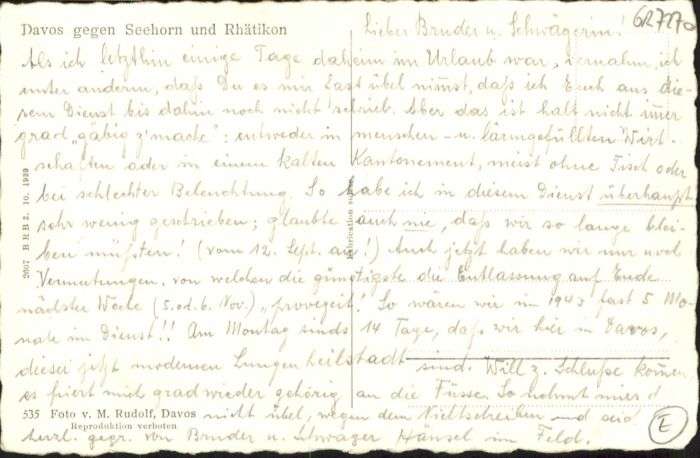 Davos gegen Seehorn und Rhätikon
Lieber Bruder u. Schwägerin!
Als ich letzthin einige Tage daheim im Urlaub war, vernahm ich
unter anderm, daß Du es mir fast übel nimmst, daß ich Euch aus die-
sem Dienst bis dahin noch nicht schrieb. Aber das ist halt nicht immer
grad „gäbig z'mache": entweder in menschen- u. lärmgefüllten Wirt-
schaften oder in einem kalten Kantonement, meist ohne Tisch oder
bei schlechter Beleuchtung. So habe ich in diesem Dienst überhaupt
sehr wenig geschrieben; glaubte auch nie, daß wir so lange blei-
ben müßten! (vom 12. Sept. an!) Auch jetzt haben wir nur
Vermutungen, von welchen die günstigste die Entlassung auf Ende
nächster Woche (5. od. 6. Nov.) So wären wir im 1943 fast 5 Mo-
nate im Dienst!! Am Montag sinds 14 Tage, daß wir hier in Davos,
dieser jetzt modernen Lungenheilstadt sind. Will z. Schluße kommen
es friert mich grad wieder gehörig an die Füsse. So nehmt mirs
nicht übel, wegen dem Nichtschreiben und seid
herzl. gegr. von Bruder u. Schwager Hänsel im Feld.
535 Foto v. M. Rudolf, Davos
Reproduktion verboten
2607 B.R.B 2. 10. 1939
Fabrication
E